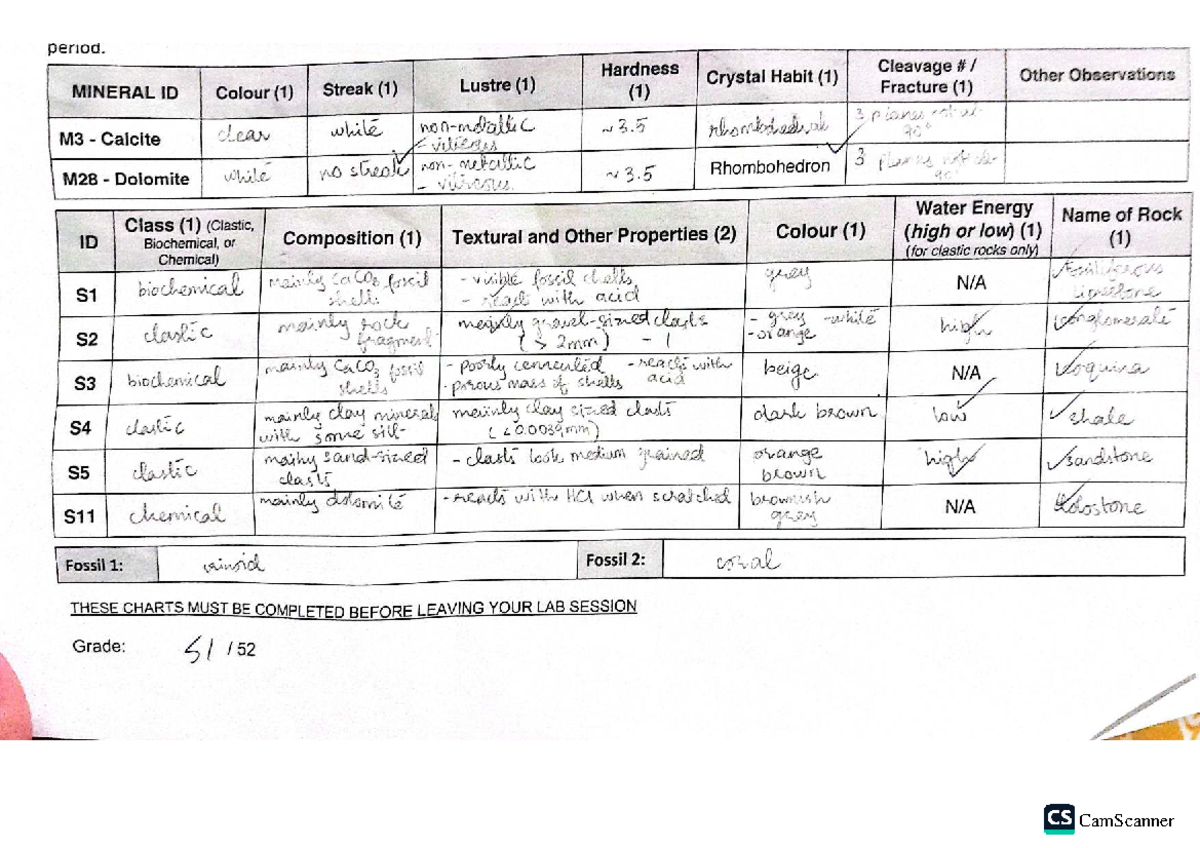 period.
MINERAL ID Colour (1) Streak (1) Lustre (1) Hardness (1) Crystal Habit (1) Cleavage # / Fracture (1) Other Observations
M3 - Calcite clear white non-metallic - vitreous ~3.5 rhombohedral 3 planes not at 90°
M28 - Dolomite white no streak non-metallic - vitreous ~3.5 Rhombohedron 3 planes not at 90°
ID Class (1) (Clastic, Biochemical, or Chemical) Composition (1) Textural and Other Properties (2) Colour (1) Water Energy (high or low) (1) (for clastic rocks only) Name of Rock (1)
S1 biochemical mainly CaCO3 fossil shells - visible fossil shells - reacts with acid grey N/A fossiliferous limestone
S2 clastic mainly rock fragment mainly gravel-sized clasts (> 2mm) - 1 - grey - white - orange high conglomerate
S3 biochemical mainly CaCO3 fossil shells - poorly cemented - reacts with acid - porous mass of shells beige N/A coquina
S4 clastic mainly clay minerals with some silt mainly clay sized clasts (<0.0039mm) dark brown low shale
S5 clastic mainly sand-sized clasts - clasts look medium grained orange brown high sandstone
S11 chemical mainly dolomite - reacts with HCl when scratched brownish grey N/A dolostone
Fossil 1: crinoid Fossil 2: coral
THESE CHARTS MUST BE COMPLETED BEFORE LEAVING YOUR LAB SESSION
Grade: 51 / 52
CS CamScanner